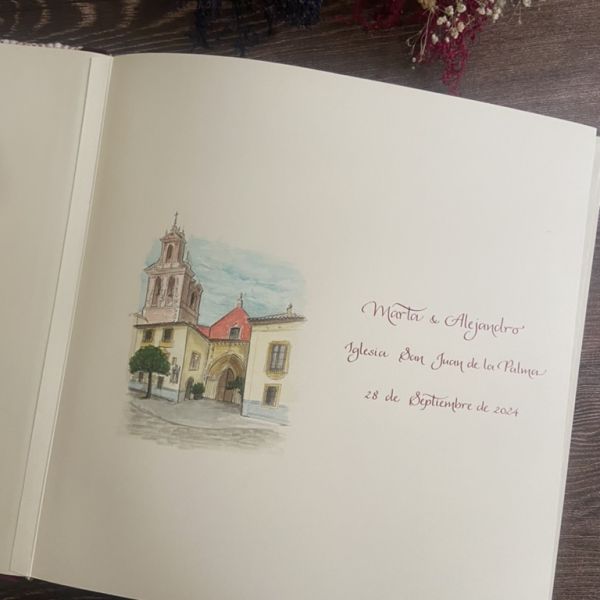 Marta & Alejandro
Iglesia San Juan de la Palma
28 de Septiembre de 2024